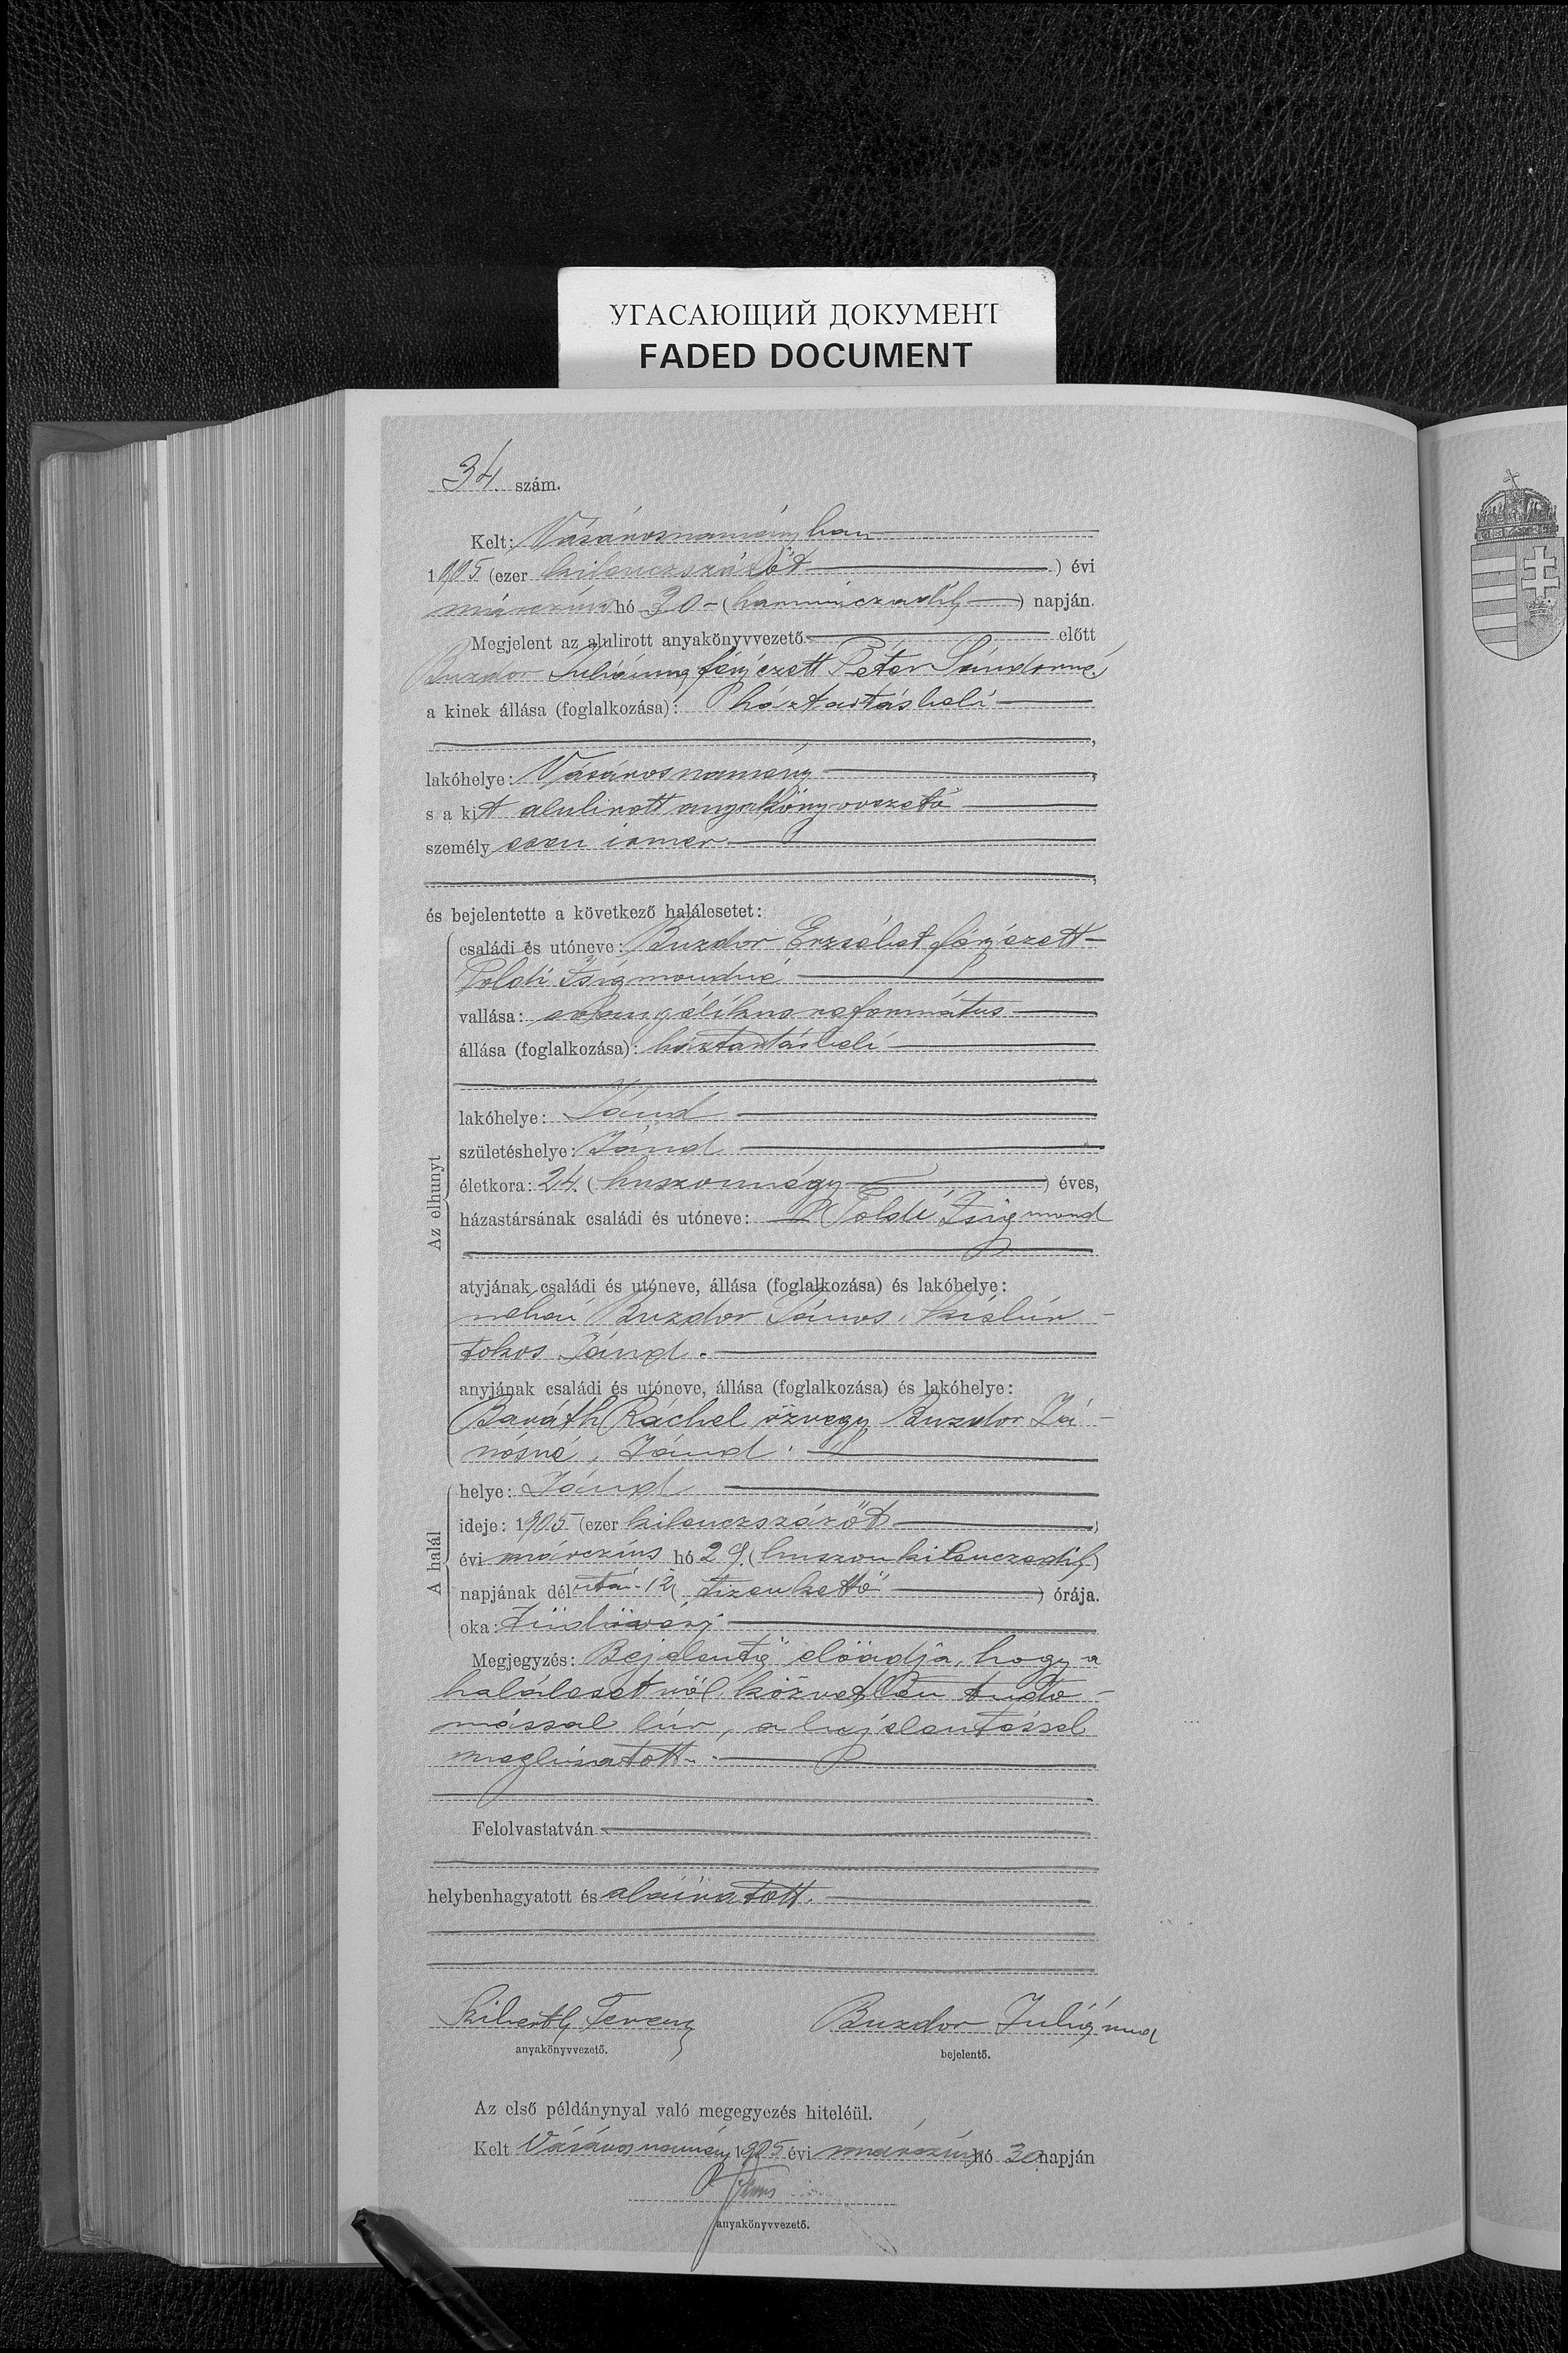 УГАСАЮЩИЙ ДОКУМЕНТ
FADED DOCUMENT
34. szám.
Kelt: Vásárosnaményban
1905 (ezer kilenczszázöt) évi
márczius hó 30 (harminczadik) napján.
Megjelent az alulirott anyakönyvvezető előtt
Buzdor Juliánna férjezett Péter Sándorné,
a kinek állása (foglalkozása): háztartásbeli
,
lakóhelye: Vásárosnamény,
s a kit alulirott anyakönyvvezető
személyesen ismer
,
és bejelentette a következő halálesetet:
Az elhunyt
családi és utóneve: Buzdor Erzsébet férjezett
Toldi Zsigmondné
vallása: evangélikus református
állása (foglalkozása): háztartásbeli
lakóhelye: Jánd
születéshelye: Jánd
életkora: 24. (huszonnégy) éves,
házastársának családi és utóneve: Toldi Zsigmond
atyjának családi és utóneve, állása (foglalkozása) és lakóhelye:
néhai Buzdor János, kisbir-
tokos Jánd.
anyjának családi és utóneve, állása (foglalkozása) és lakóhelye:
Baráth Ráchel özvegy Buzdor Já-
nosné, Jánd.
A halál
helye: Jánd
ideje: 1905 (ezer kilenczszázöt)
évi márczius hó 29. (huszonkilenczedik)
napjának délután 12 (tizenkettő) órája.
oka: Tüdővész
Megjegyzés: Bejelentő előadja, hogy a
halálesetről közvetlen tudo-
mással bir, a bejelentéssel
megbizatott.
Felolvastatván
helybenhagyatott és aláiratott.
Ferencz Buzdor Juliánna
anyakönyvvezető. bejelentő.
Az első példánynyal való megegyezés hiteléül.
Kelt Vásárosnamény 1905 évi márczius hó 30 napján
anyakönyvvezető.